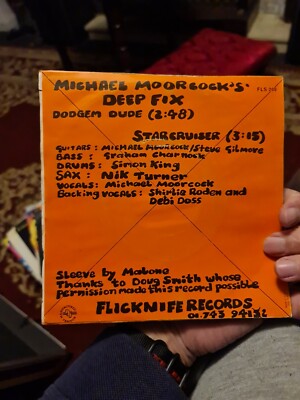 MICHAEL MOORCOCK'S
DEEP FIX
FLS 200
DODGEM DUDE (2:48)
STARCRUISER (3:15)
GUITARS: MICHAEL MOORCOCK/STEVE GILMORE
BASS: Graham Charnock
DRUMS: Simon King
SAX: Nik Turner
VOCALS: Michael Moorcock
Backing vocals: Shirlie Roden and
Debi Doss
Sleeve by Malone
Thanks to Doug Smith whose
Permission made this record possible
FLICKNIFE RECORDS
01.743 94132